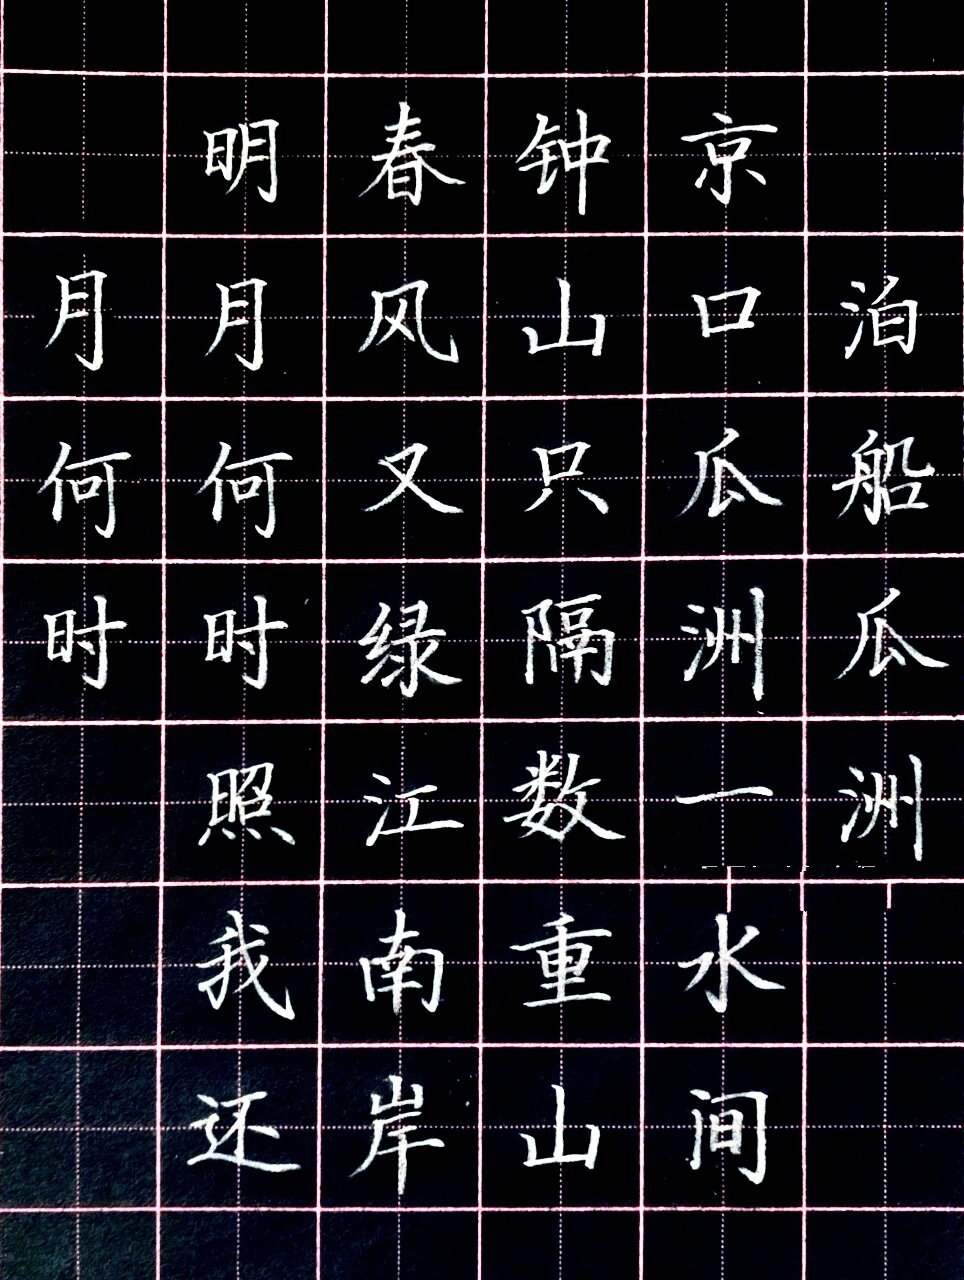 泊船瓜洲
京口瓜洲一水间
钟山只隔数重山
春风又绿江南岸
明月何时照我还
月何时